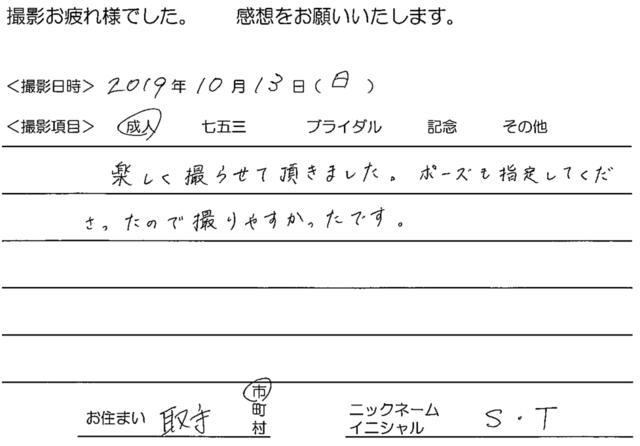 撮影お疲れ様でした。　感想をお願いいたします。
＜撮影日時＞ 2019年 10月 13日（日）
＜撮影項目＞ 成人　七五三　ブライダル　記念　その他
楽しく撮らせて頂きました。ポーズも指定してくだ
さったので撮りやすかったです。
お住まい 取手 市町村　ニックネーム イニシャル S・T